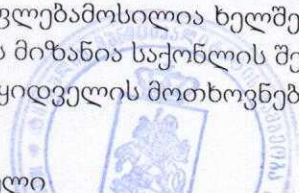 ფლებამოსილია ხელშე
ს მიზანია საქონლის შე
ყიდველის მოთხოვნებ
ელი